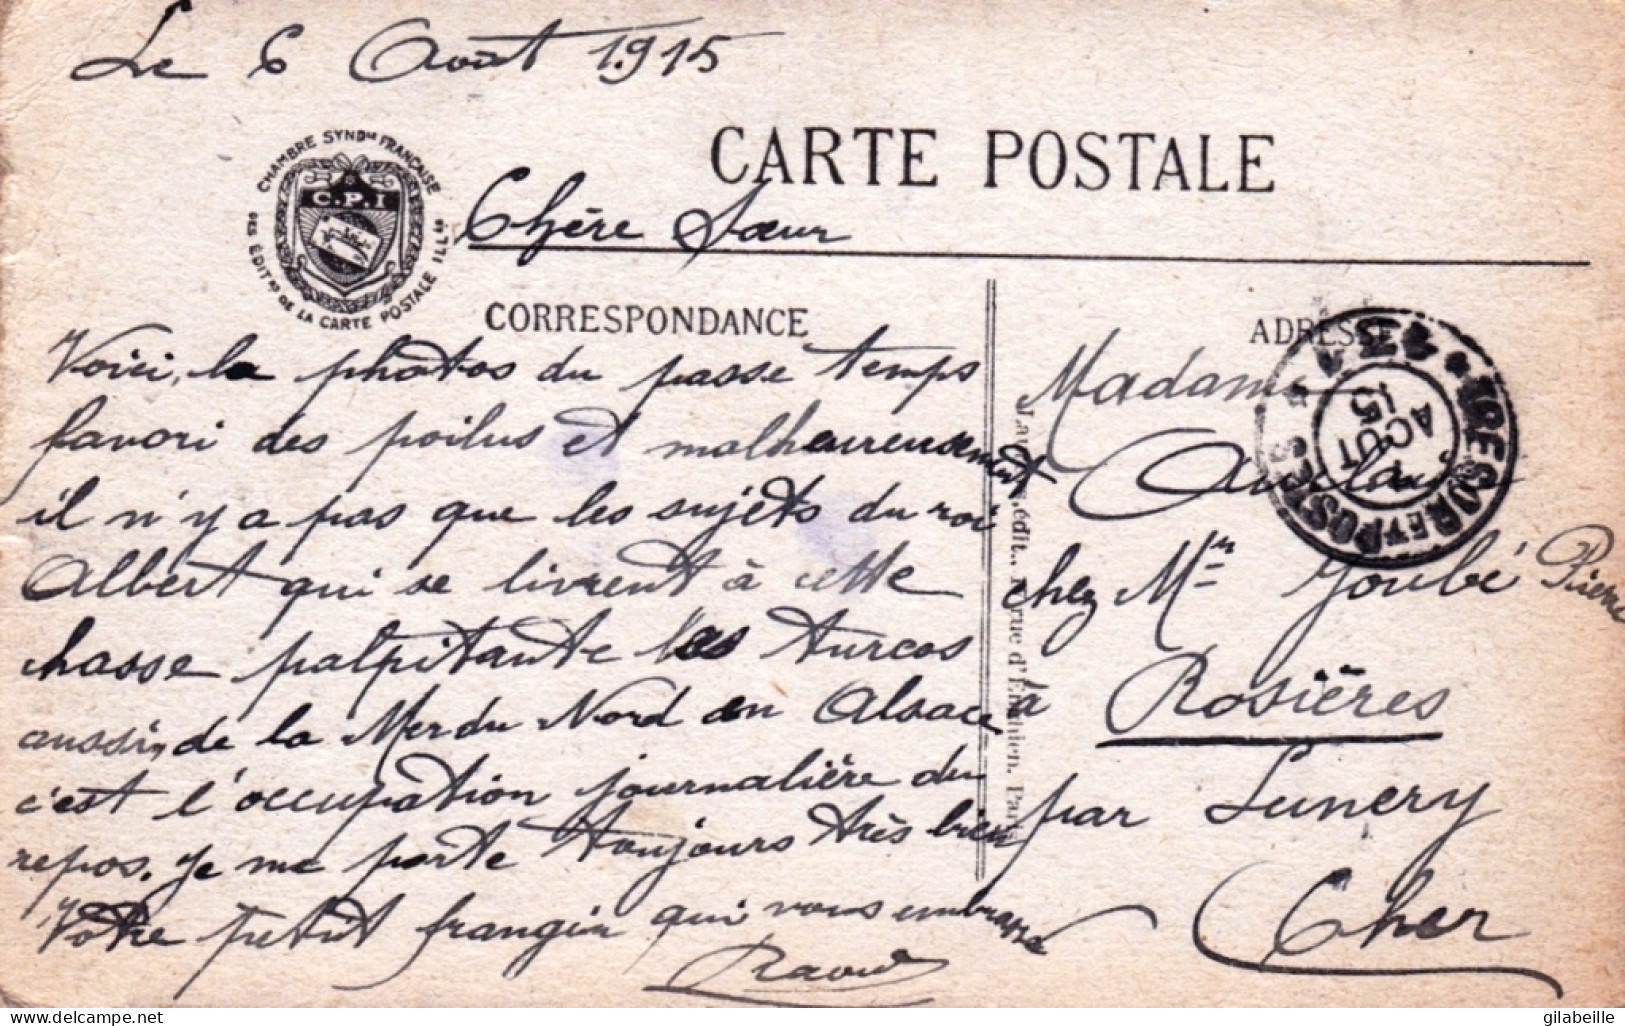 Le 6 Août 1915
CHAMBRE SYND^LE FRANÇAISE
DES ÉDIT^RS DE LA CARTE POSTALE ILL^ÉE
C.P.I
CARTE POSTALE
Chère Sœur
CORRESPONDANCE
Voici, la photos du passe temps
favori des poilus et malheureusement
il n'y a pas que les sujets du roi
Albert qui se livrent à cette
chasse palpitante les turcos
aussi, de la Mer du Nord en Alsace
c'est l'occupation journalière du
repos. Je me porte toujours très bien
Votre petit frangin qui vous embrasse
Raoul
ADRESSE
Madame
chez M^r Goubé Pierre
à Rosières
par Lunery
Cher
édit., rue d'Enghien, Paris
TRESOR ET POSTES
AOUT
15
gilabeille